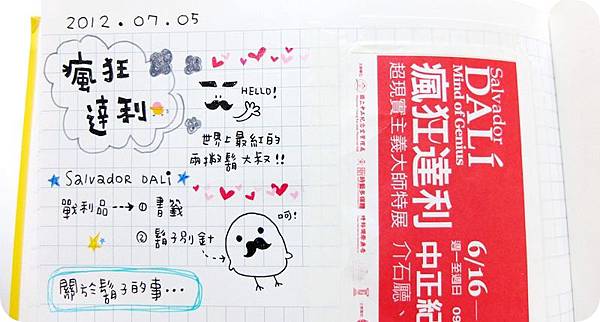 2012.07.05
瘋狂
達利
HELLO!
世界上最紅的
兩撇鬍大叔!!
SALVADOR DALI
戰利品---→①書籤
②鬍子別針
呵!
關於鬍子的事...
Salvador
DALÍ
Mind of Genius
瘋狂達利
超現實主義大師特展
6/16
週一至週日 09
中正紀
介石廳、